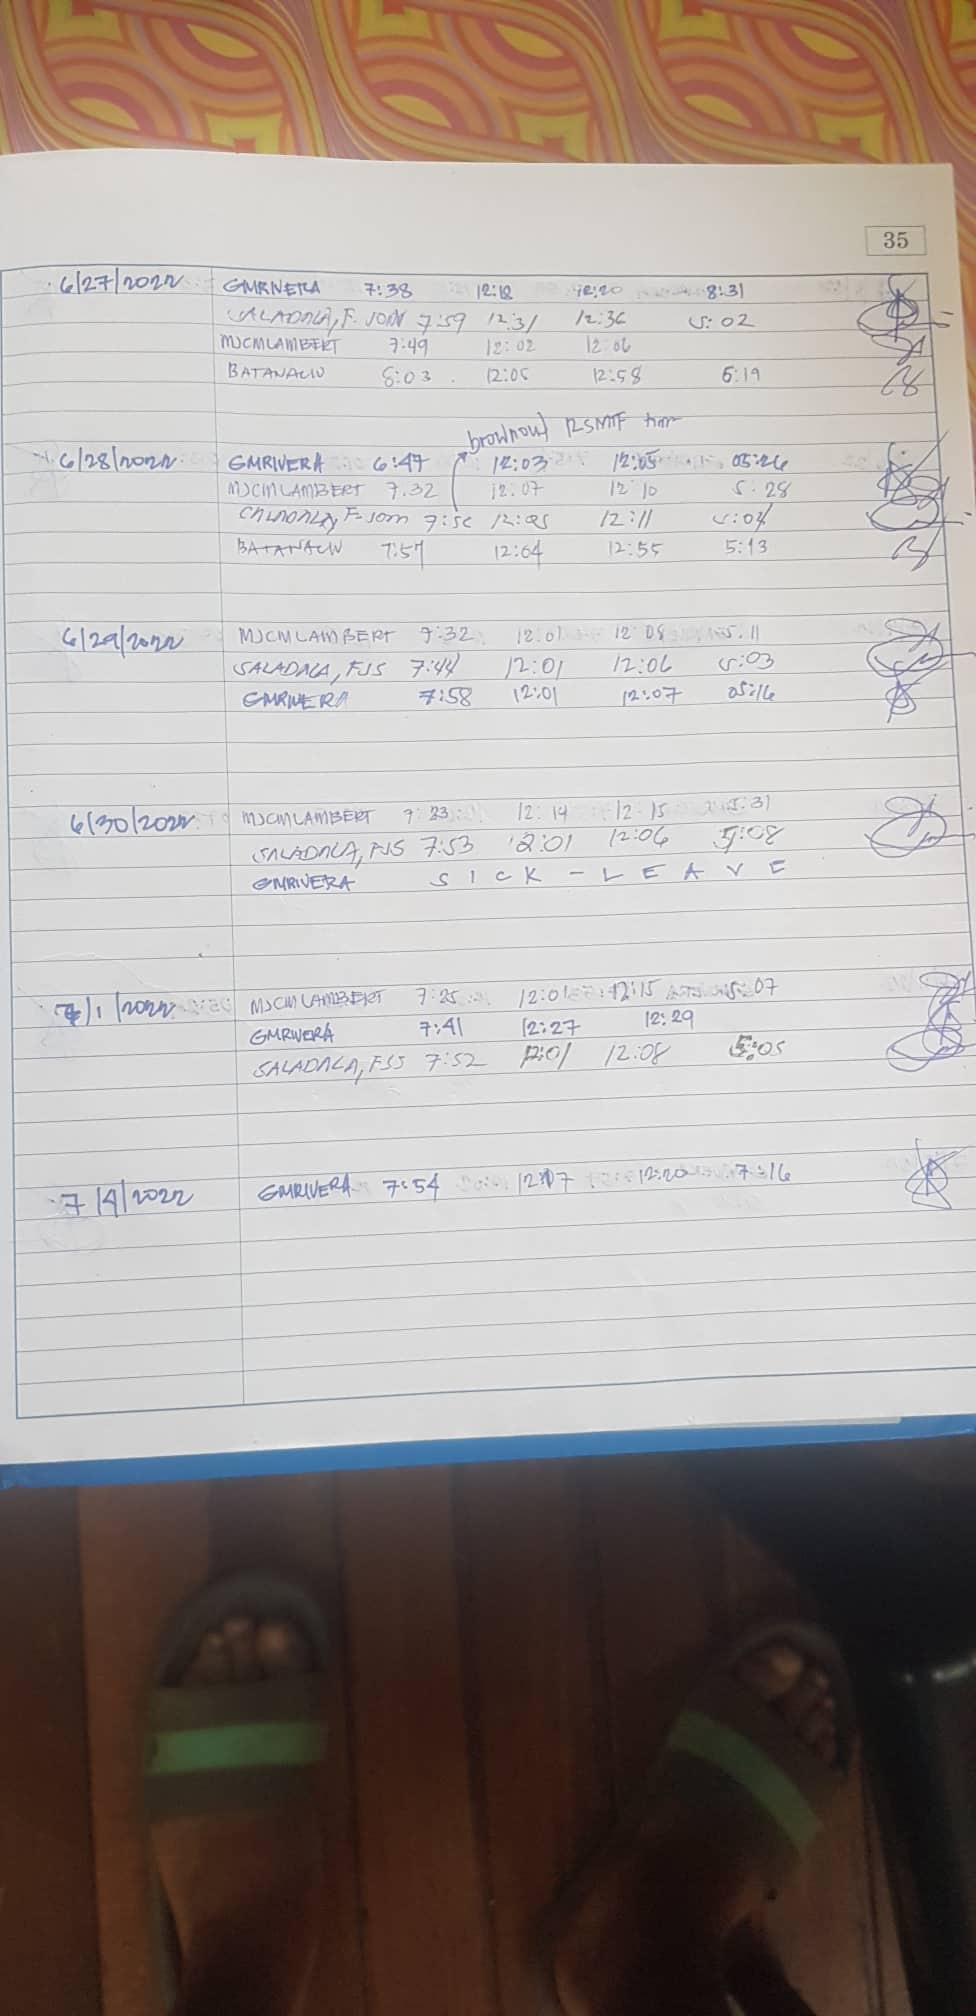 35
6/27/2022 GMRIVERA 7:38 12:18 12:20 8:31
SALADAGA, F. JOIN 7:59 12:31 12:36 5:02
MJCMLAMBERT 7:49 12:02 12:06
BATANACIO 8:03 12:05 12:58 5:19
brownout
6/28/2022 GMRIVERA 6:47 12:03 12:05 05:26
MJCMLAMBERT 7:32 12:07 12:10 5:28
12:11
BATANACIO 7:57 12:04 12:55 5:13
6/29/2022 MJCMLAMBERT 7:32 12:01 12:08 5:11
SALADAGA, FJS 7:44 12:01 12:06 5:03
GMRIVERA 7:58 12:01 12:07 05:16
6/30/2022 MJCMLAMBERT 7:33 12:14 12:15 5:31
SALADAGA, FJS 7:53 12:01 12:06 5:08
GMRIVERA SICK - LEAVE
7/1/2022 MJCMLAMBERT 7:25 12:01 12:15 5:07
GMRIVERA 7:41 12:27 12:29
SALADAGA, FJS 7:52 12:01 12:08 5:05
7/4/2022 GMRIVERA 7:54 12:17 12:20 7:16